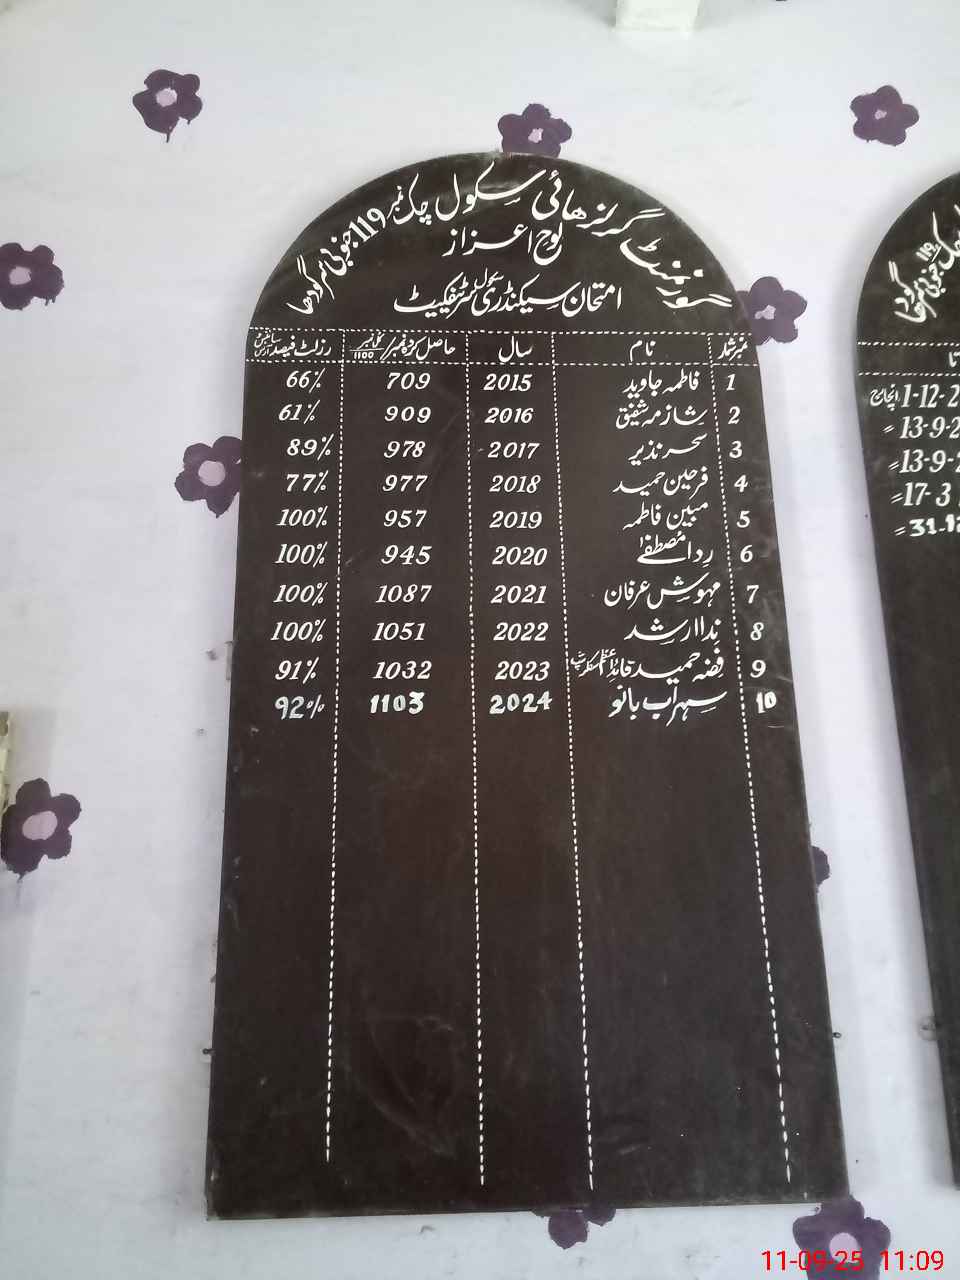 گورنمنٹ گرلز ھائی سکول چک نمبر 119 جنوبی سرگودھا
لوح اعزاز
امتحان سیکنڈری سکول سرٹیفکیٹ
نمبر شمار نام سال حاصل کردہ نمبر/کل نمبر 1100 رزلٹ فیصد سائنس آرٹس
1 فاطمہ جاوید 2015 709 66%
2 شازمہ شفیق 2016 909 61%
3 سحر نذیر 2017 978 89%
4 فرحین حمید 2018 977 77%
5 مبین فاطمہ 2019 957 100%
6 ردا مصطفےٰ 2020 945 100%
7 مہوش عرفان 2021 1087 100%
8 ندا ارشد 2022 1051 100%
9 فضہ حمید قائد اعظم سکالرشپ 2023 1032 91%
10 سہراب بانو 2024 1103 92%
چک 119 جنوبی سرگودھا
تا
1-12-2 انچارج
13-9-2 =
13-9-2 =
17-3 =
31-12 =
11-09-25 11:09